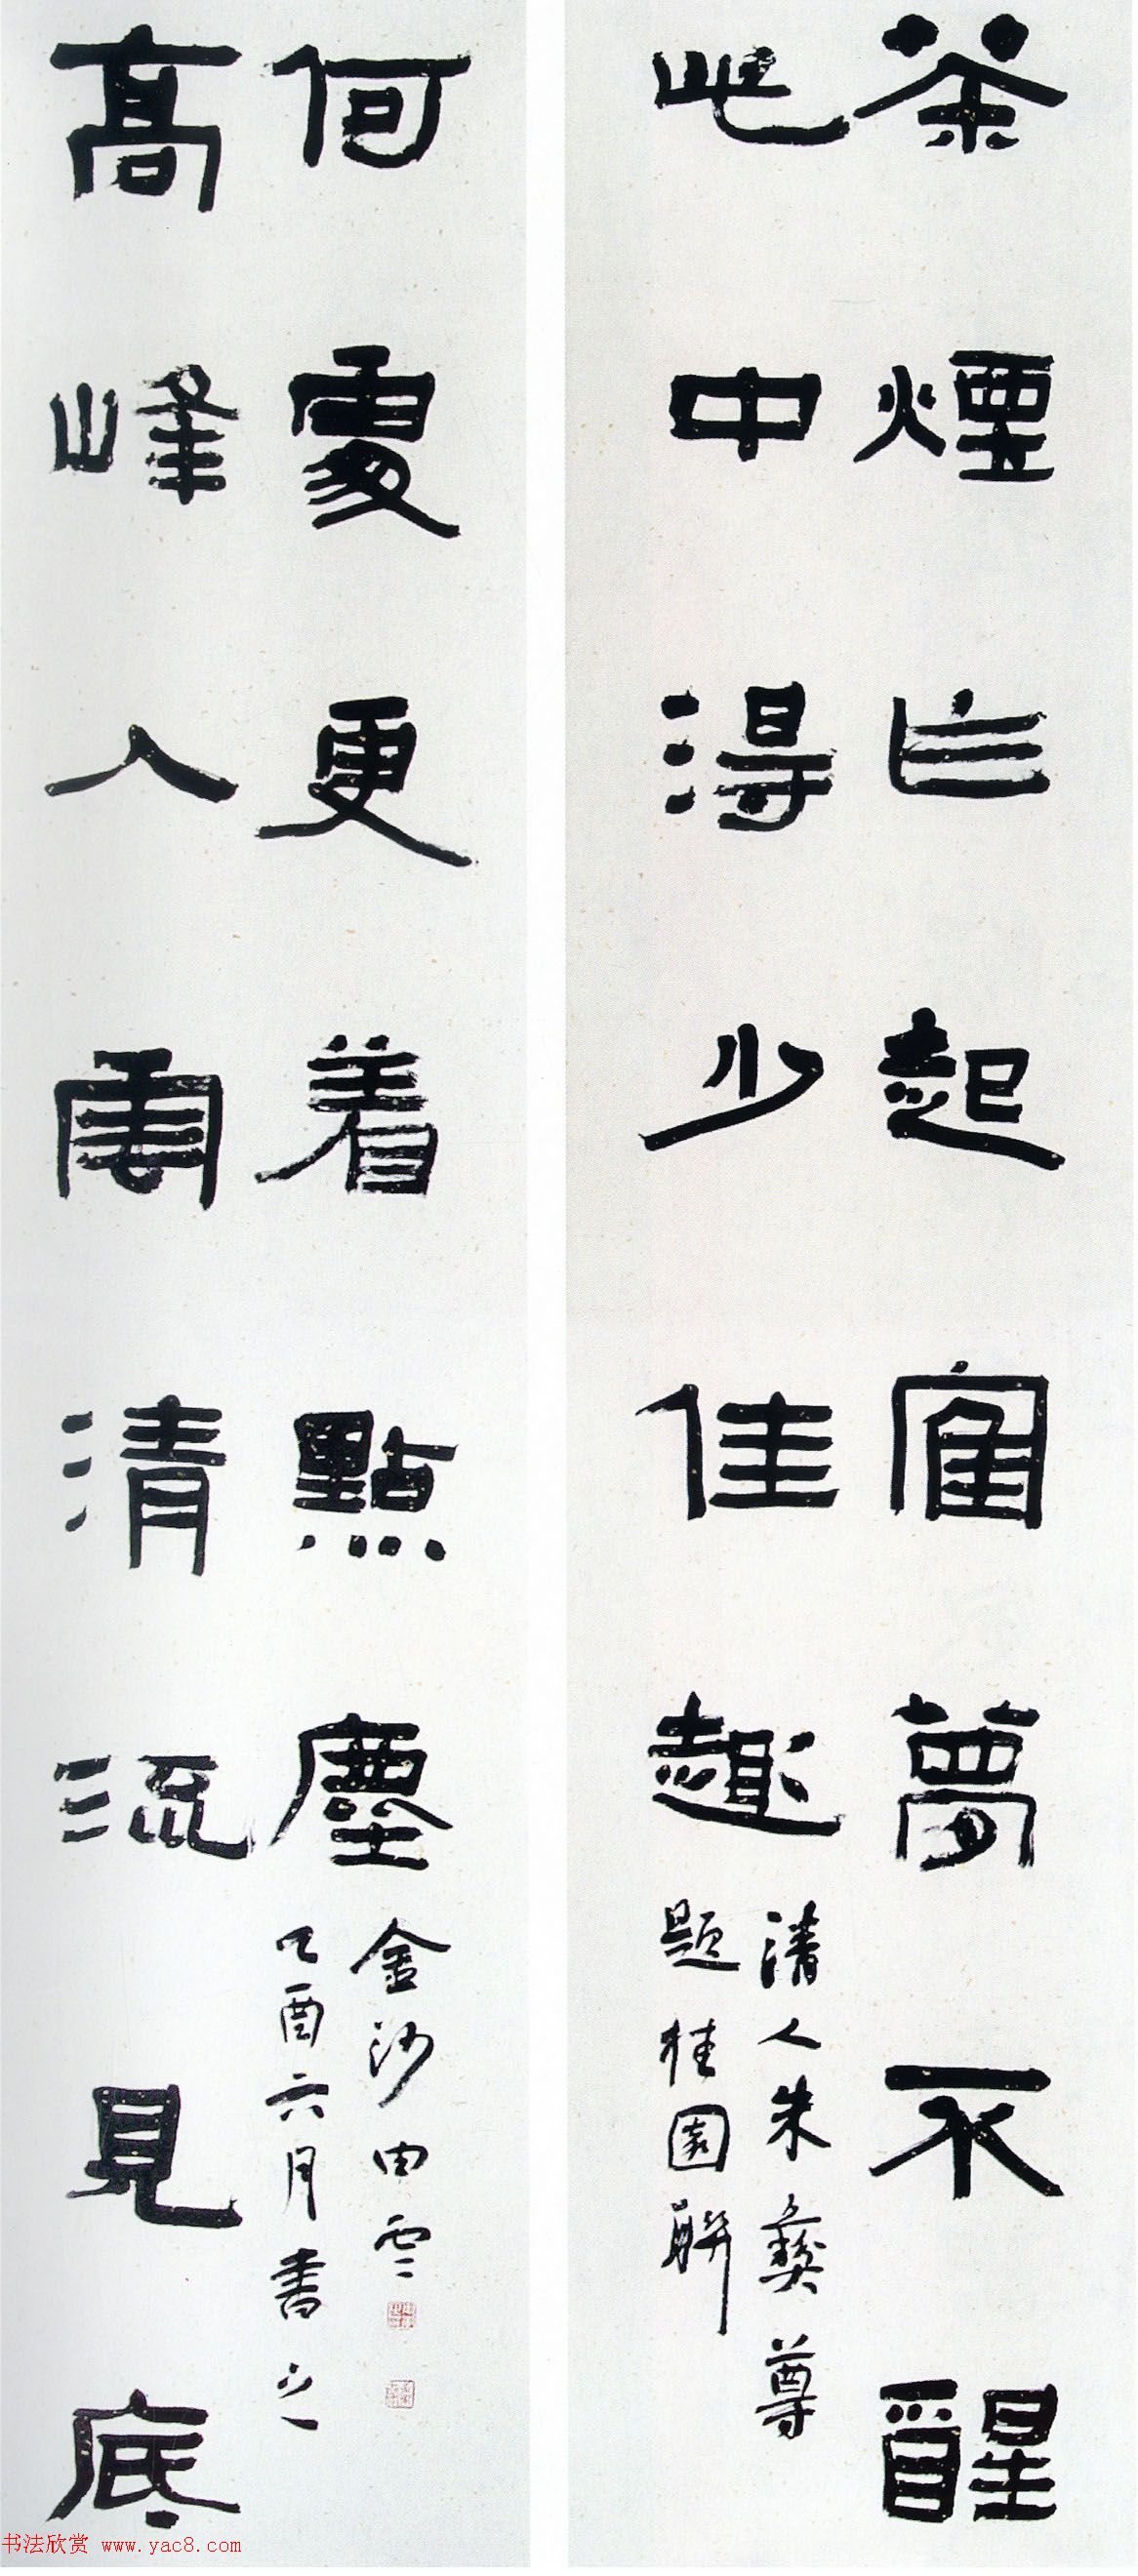 茶煙乍起寉夢不醒
此中得少佳趣
清人朱彝尊
題桂園聯
高峰入雲清流見底
何處更着點塵
乙酉六月書之
金沙申雲
书法欣赏 www.yac8.com